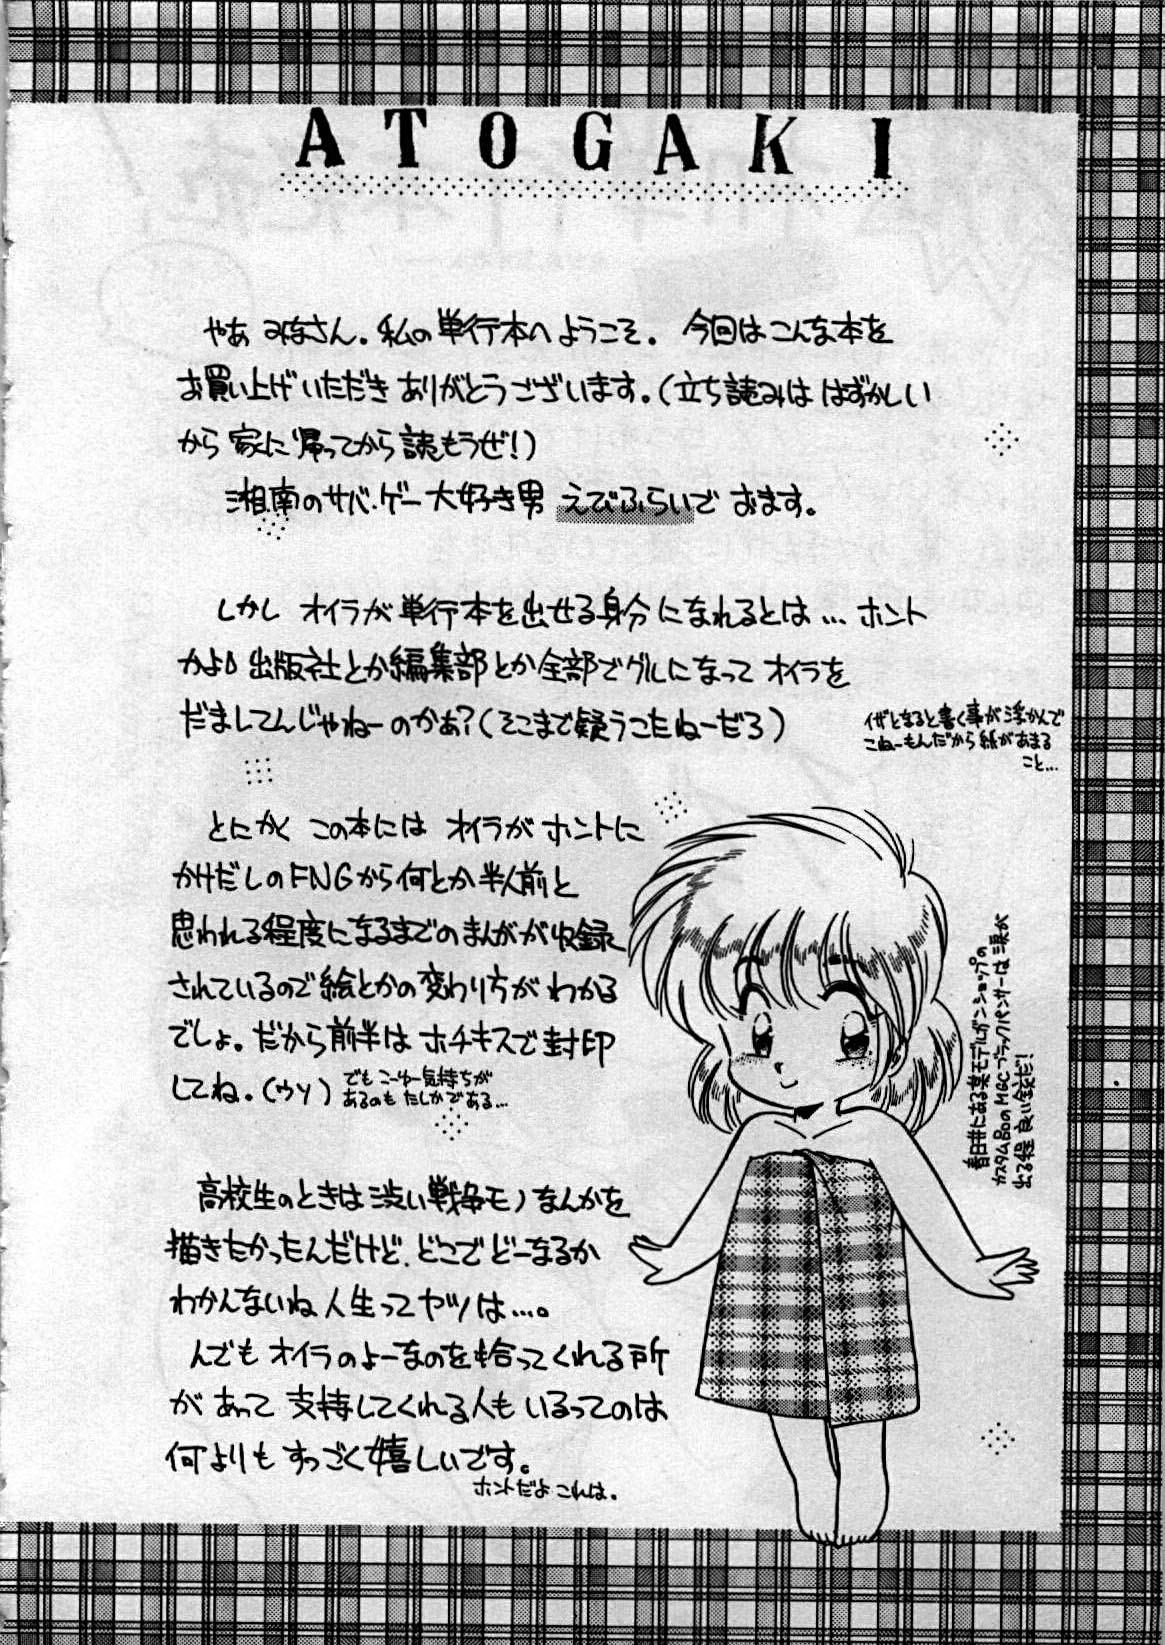 ATOGAKI
やあ みなさん。私の単行本へようこそ。 今回はこんな本を
お買い上げいただき ありがとうございます。(立ち読みは はずかしい
から 家に帰ってから読もうぜ!)
湘南のサバ・ゲー大好き男 えびふらいで おます。
しかし オイラが単行本を出せる身分になれるとは… ホント
かよ 出版社とか編集部とか全部でグルになって オイラを
だましてんじゃねーのかぁ?(そこまで疑うこたねーだろ)
イザとなると書く事が浮かんで
こねーもんだから 紙があまる
こと…
とにかく この本には オイラが ホントに
かけだしのFNGから何とか半人前と
思われる程度になるまでのまんがが収録
されているので絵とかの変わり方が わかる
でしょ。だから前半は ホチキスで封印
してね。(ウソ)
でも こーゆー気持ちが
あるのも たしかである…
春日井にある某モデルガンショップの
カスタム80のMGCブラックパンサーは 涙が
出る程 良い銃だ!
高校生のときは渋い戦争モノなんかを
描きたかったんだけど、どこで どーなるか
わかんないね 人生ってヤツは…。
んでも オイラのよーなのを拾ってくれる所
が あって 支持してくれる人も いるってのは
何よりも すっごく嬉しいです。
ホントだよ これは。